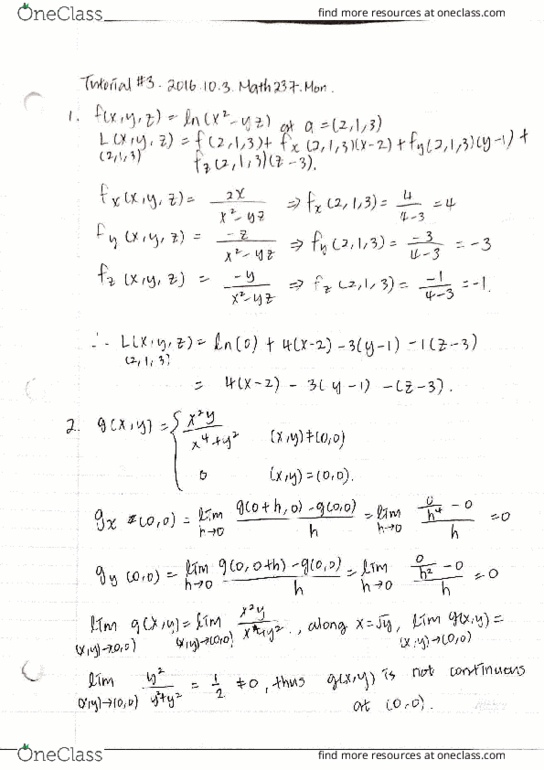 OneClass find more resources at oneclass.com
Tutorial #3. 2016.10.3. Math237.Mon.
1. f(x,y,z) = ln(x²-yz) at a = (2,1,3)
L(x,y,z) = f(2,1,3) + fx(2,1,3)(x-2) + fy(2,1,3)(y-1) +
(2,1,3) fz(2,1,3)(z-3).
fx(x,y,z) = 2x / (x²-yz) ⇒ fx(2,1,3) = 4/(4-3) = 4
fy(x,y,z) = -z / (x²-yz) ⇒ fy(2,1,3) = -3/(4-3) = -3
fz(x,y,z) = -y / (x²-yz) ⇒ fz(2,1,3) = -1/(4-3) = -1.
∴ L(x,y,z) = ln(0) + 4(x-2) -3(y-1) -1(z-3)
(2,1,3)
= 4(x-2) - 3(y-1) - (z-3).
2. g(x,y) = { x²y / (x⁴+y²) (x,y)≠(0,0)
0 (x,y)=(0,0).
gx (0,0) = lim h→0 (g(0+h,0)-g(0,0))/h = lim h→0 (0/h⁴ - 0)/h = 0
gy (0,0) = lim h→0 (g(0,0+h)-g(0,0))/h = lim h→0 (0/h² - 0)/h = 0
lim (x,y)→(0,0) g(x,y) = lim (x,y)→(0,0) x²y / (x⁴+y²) ., along x=√y, lim (x,y)→(0,0) g(x,y) =
lim (x,y)→(0,0) y²/(y²+y²) = 1/2 ≠0, thus g(x,y) is not continuous
at (0,0).
OneClass find more resources at oneclass.com